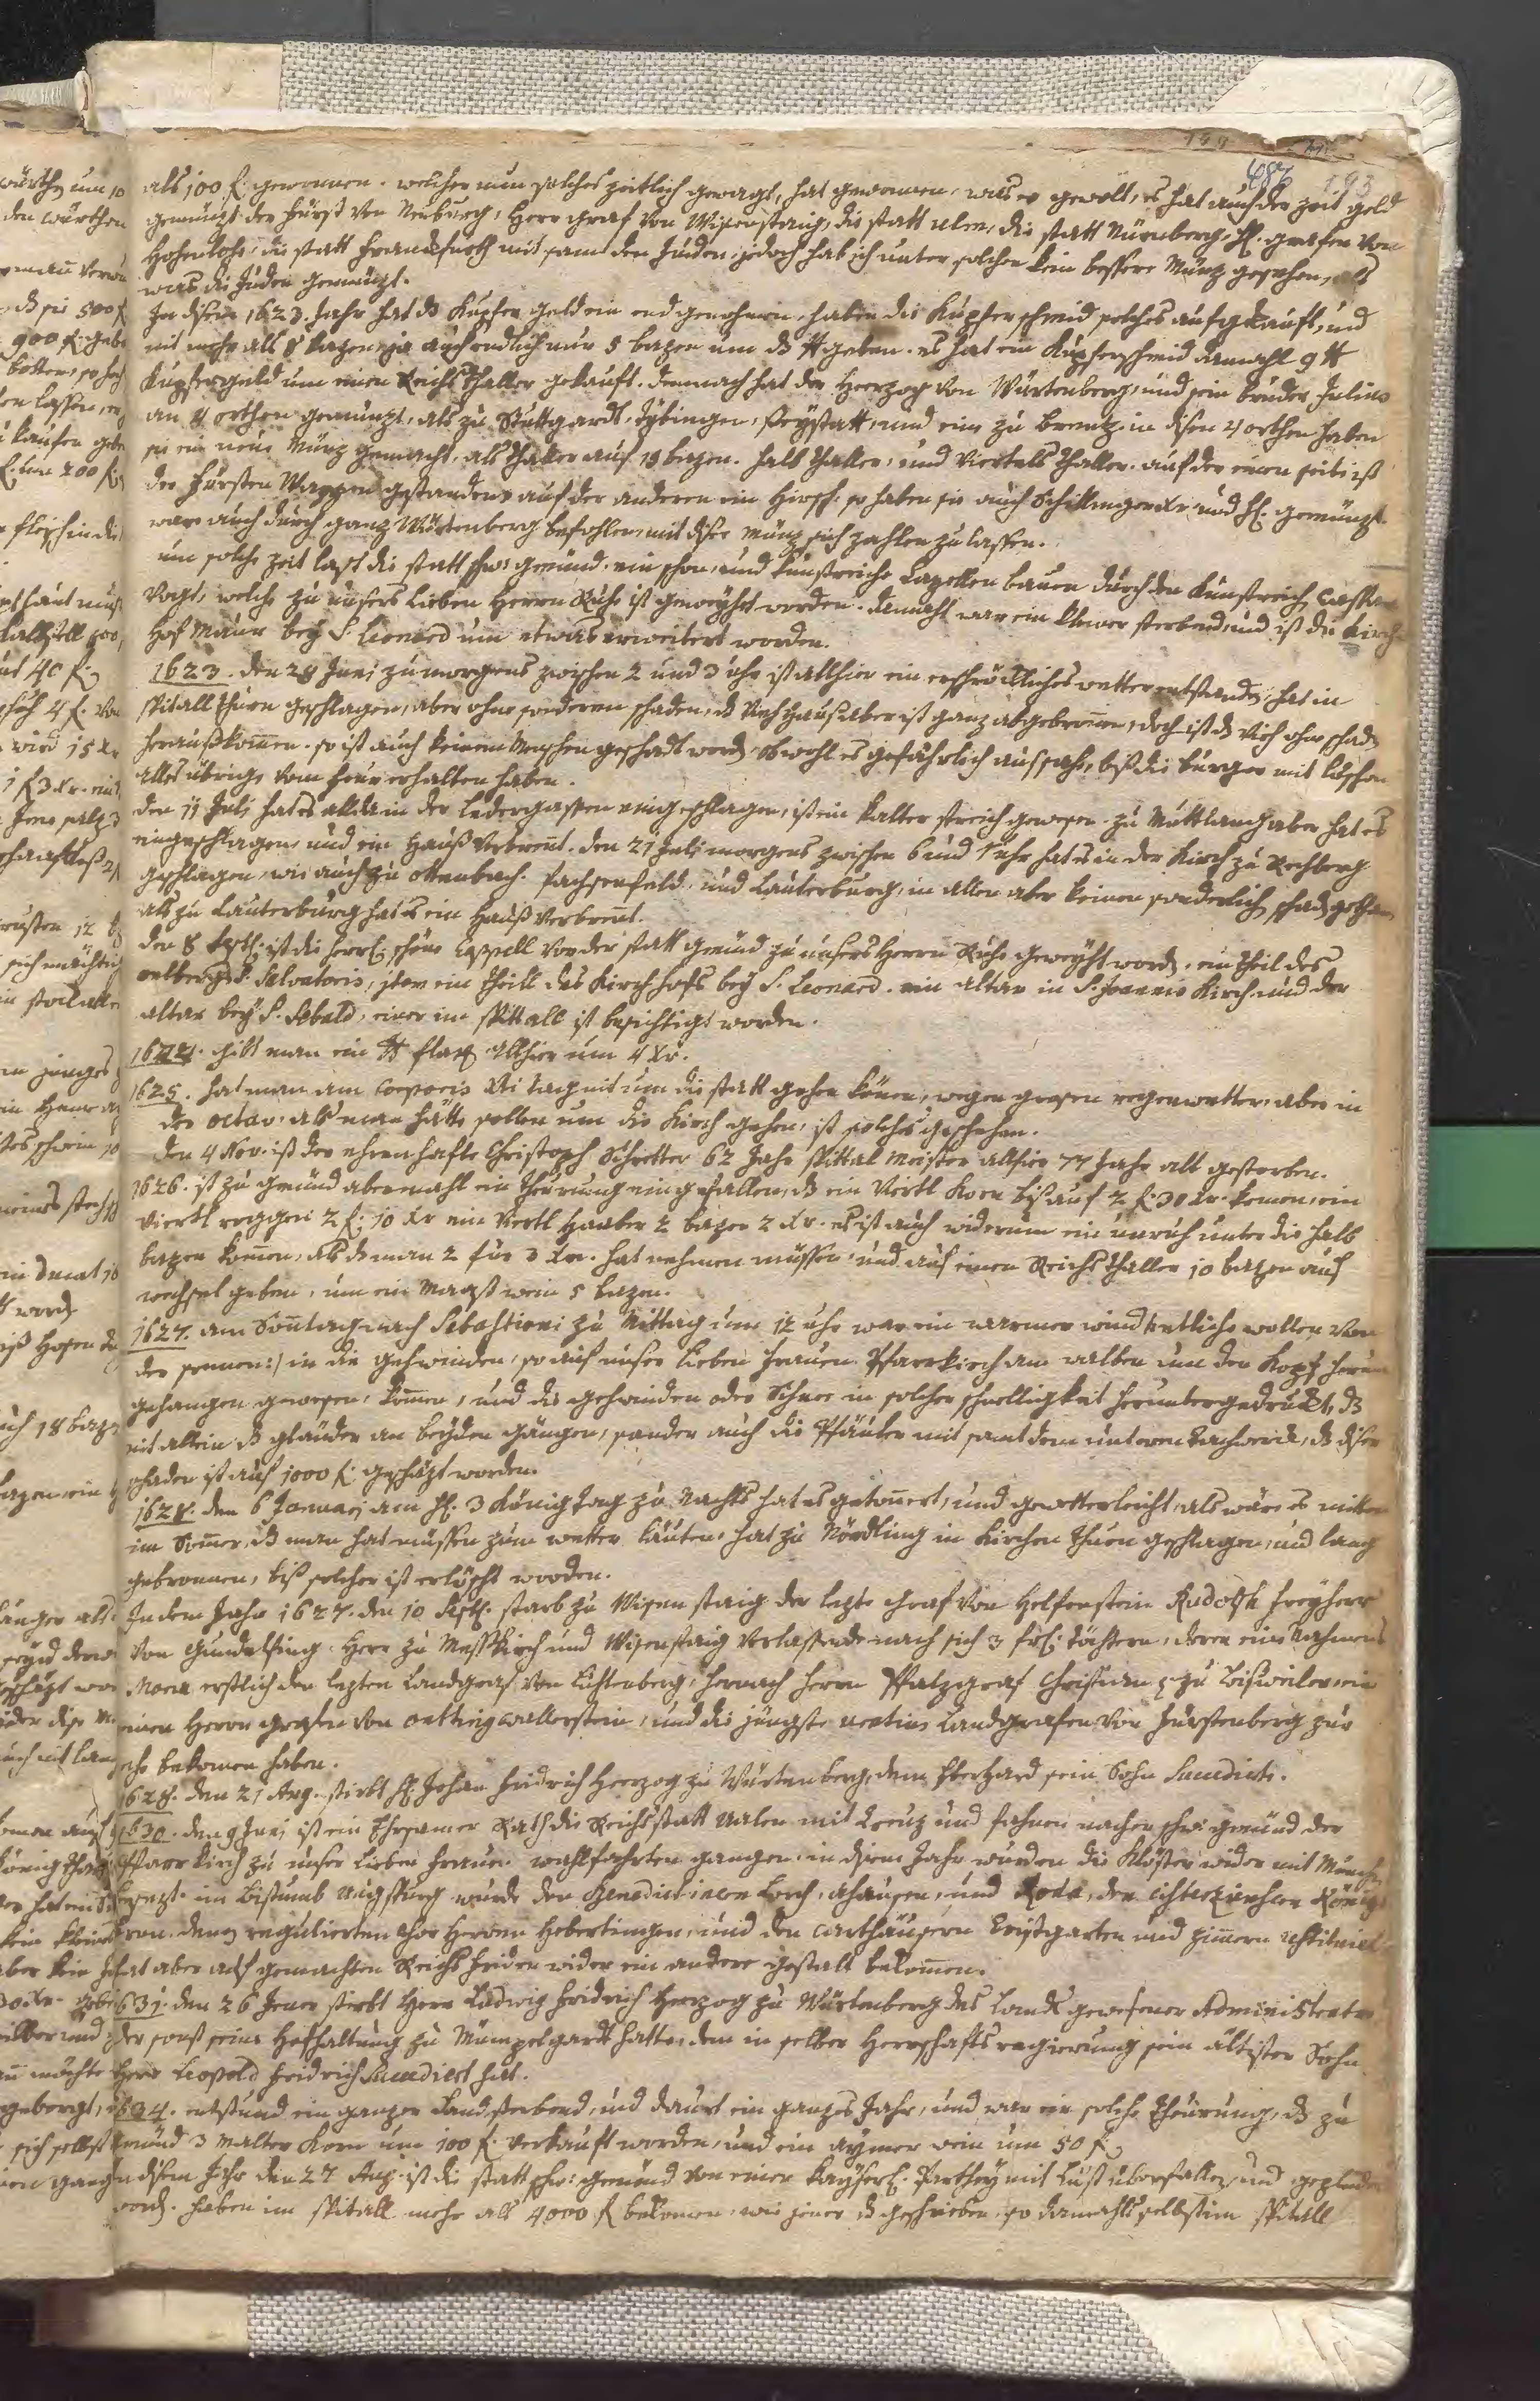 487 193
als 100 f. gewonnen. welcher nun solches zeitlich gewagt, hat gewonnen, was er gewölt, es hat auch der zeit geld
gemünzt der Fürst von Neuburg, Herr graf von Wisenstaig, die statt ulm, die statt Nürnberg, H. grafen von
Hohenlohe, die statt Franckfurth mit samt den Juden, jedoch hab ich unter solchen kein bessere Münz gesehen, als
was die Juden gemünzt.
In disem 1623. Jahr hat dz Kupfer geld ein end genohmen, haben die Kupferschmid solches aufgekauft, und
nit mehr als 8 bazen, ja auch endlich nur 5 bazen um dz ℔ geben. es hat ein Kupferschmid damahl 9 ℔
Kupfergeld um einen Reichsthaller gekauft. demnach hat der Herzog von Würtenberg, und sein bruder Julius
an 4 orthen gemünzt, als zu Stuttgardt, Tübingen, Freystatt, und ein zu Brentz. in disen 4 orthen haben
sie ein neue Münz gemacht, als Thaller auf 18 bazen. halb thaller, und viertels thaller. auf der einen seite ist
der Fürsten Wappen gestanden, auf der anderen ein Hirsch. so haben sie auch Schillinger xr. und hl. gemünzt.
war auch durch ganz Würtenberg befohlen, mit diser münz sich zahlen zu lassen.
um solche zeit last die statt schw: gmünd ein schön, und kunstreiche Capellen bauen durch den kunstreich Caspar
Vogt, welche zu unsers lieben Herren Ruhe ist geweyhet worden. damahl war ein kleiner sterbend, und ist die Kirch
hof Maur bey S. Leonard um etwas erweitert worden.
1623. den 28 Juni zu morgens zwischen 2 und 3 uhr ist allhier ein erschröckliches wetter entstanden, hat in
spitall thurn geschlagen, aber ohne sonderen schaden, dz Viehhaus aber ist ganz abgebronnen, doch ist dz vieh ohne schaden
herauskommen. so ist auch keinem Menschen geschadt worden, obwohl es gefährlich aussahe, biß die burger mit löschen
alles übrige vom feur erhalten haben.
den 11 Juli hat es alda in der ledergassen eingeschlagen, ist ein kalter streich gewesen. zu Muttlang aber hat es
eingeschlagen, und ein Hauß verbrennt. den 21 Juli morgens zwischen 6 und 7 uhr hat es in der Kirch zu Rechberg
geschlagen, wie auch zu ottenbach. fachsenfeld, und Lauterburg, in allen aber keinen sonderlich schaden gethan,
als zu Lauterburg hat es ein Hauß verbrennt.
den 8 Septb. ist die herrl. schöne Cappell vor der statt gmünd zu unsers Herren Ruhe geweyht worden. ein theil des
oelbergs S. Salvatoris, item ein theill des Kirchhofs bey S. Leonard. ein altar in S. Joannis Kirch und der
altar bey S. Sebald, einer im spittall ist besichtigt worden.
1624. gibt man ein ℔ flax allhier um 4 xr.
1625. hat man am Corporis Xti tag nit um die statt gehen können, wegen grosen regenwetter, aber in
der octav, als man hätte sollen um die Kirch gehen, ist solches geschehen.
den 4 Nov. ist der ehrenhafte Christoph Schretter 62 Jahr spittal meister allhier 77 Jahr alt gestorben.
1626. ist zu gmünd abermahl ein theurung eingefallen, dz ein Viertl Korn biß auf 2 f. 30 xr. kommen, ein
Viertl roggen 2 f. 10 xr ein Viertl Haaber 2 bazen 2 xr. es ist auch widerum ein unruh unter die halb
bazen kommen, als dz man 2 für 3 xr. hat nehmen müssen, und auf einen Reichsthaller 10 bazen auf
wechsel geben, um ein Maaß wein 5 bazen.
1627. am Sontag nach Sebastiani zu Mittag um 12 uhr war ein warmer wind in die gehwinden, so auf unser lieben Frauen Pfarrkirch am um den Kopf herum
gehangen gewesen, kommen, und die gehwinden oder Schnee in solcher schnelligkeit heruntergedruckt, dz
nit allein dz gländer an beyden gängen, sonder auch die mit samt dem unteren tachwerck, dz diser
schaden ist auf 1000 f. geschäzt worden.
1628. den 6 Januarj am H. 3 König tag zu Nachts hat es getonnert, und gewetterleicht, als wäre es mitten
im Sommer, dz man hat müssen zum wetter läuten, hat zu Nördling in Kirchen thurn geschlagen, und lang
gebronnen, biß solcher ist erlöscht worden.
In dem Jahr 1627. den 10 Septb. starb zu Wisenstaig der lezte graf von Helfenstein Rudolph freyherr
von Gundelfing Herr zu Messkirch und Wisenstaig verlassende nach sich 3 frl. töchtern, deren eine Nahmens
Maria erstlich den lezten Landgraf von Lichtenberg, hernach Herrn Pfalzgraf Christian zu
einen Herren grafen von oetting wallerstein, und die jüngste Landgrafen von Fürstenberg zur
ehe bekomen haben.
1628. den 21 Aug. stirbt H. Johan Fridrich Herzog zu Würtenberg, dem Eberhard sein Sohn succedirte.
1630. den 9 Juni ist ein Ehrsamer Rath die Reichsstatt aalen mit Creuz und fahnen nacher schw: gmünd der
Pfarr kirch zu unser lieben Frauen wahlfahrten gangen. in disem Jahr wurden die Klöster wider mit Münch
besezt. im Bistumb Augspurg wurde den Benedictinern Lorch, Ahausen, und Roda, den Cistercienseren Königs
bron. denen regulierten chor Herren Hebertingen, und den carthäusern Cristgarten und zimmern restituiert
hat aber auf gemachten Reichs friden wider ein andere gestalt bekommen.
1631. den 26 Jener stirbt Herr Ludwig Fridrich Herzog zu Würtenberg des Lands gewesener Administrator
der sonst seine Hofhaltung zu Mümpelgardt hatte, dem in selber Herrschafts regierung sein ältister Sohn
Herr Leopold Fridrich succediert hat.
1634. entstund ein ganzer Landsterbend, und daurt ein ganzes Jahr, und war ein solche theurung, dz zu
gmünd 3 malter Korn um 100 f. verkauft worden, und ein aymer wein um 50 f.
In disem Jahr den 27 Aug. ist die statt schw: gmünd von einer kayserl. Parthey mit lust überfallen, und geplündert
worden. haben im spitall mehr als 4000 f bekomen, wie jener dz geschrieben, so damahls selbst im spitall